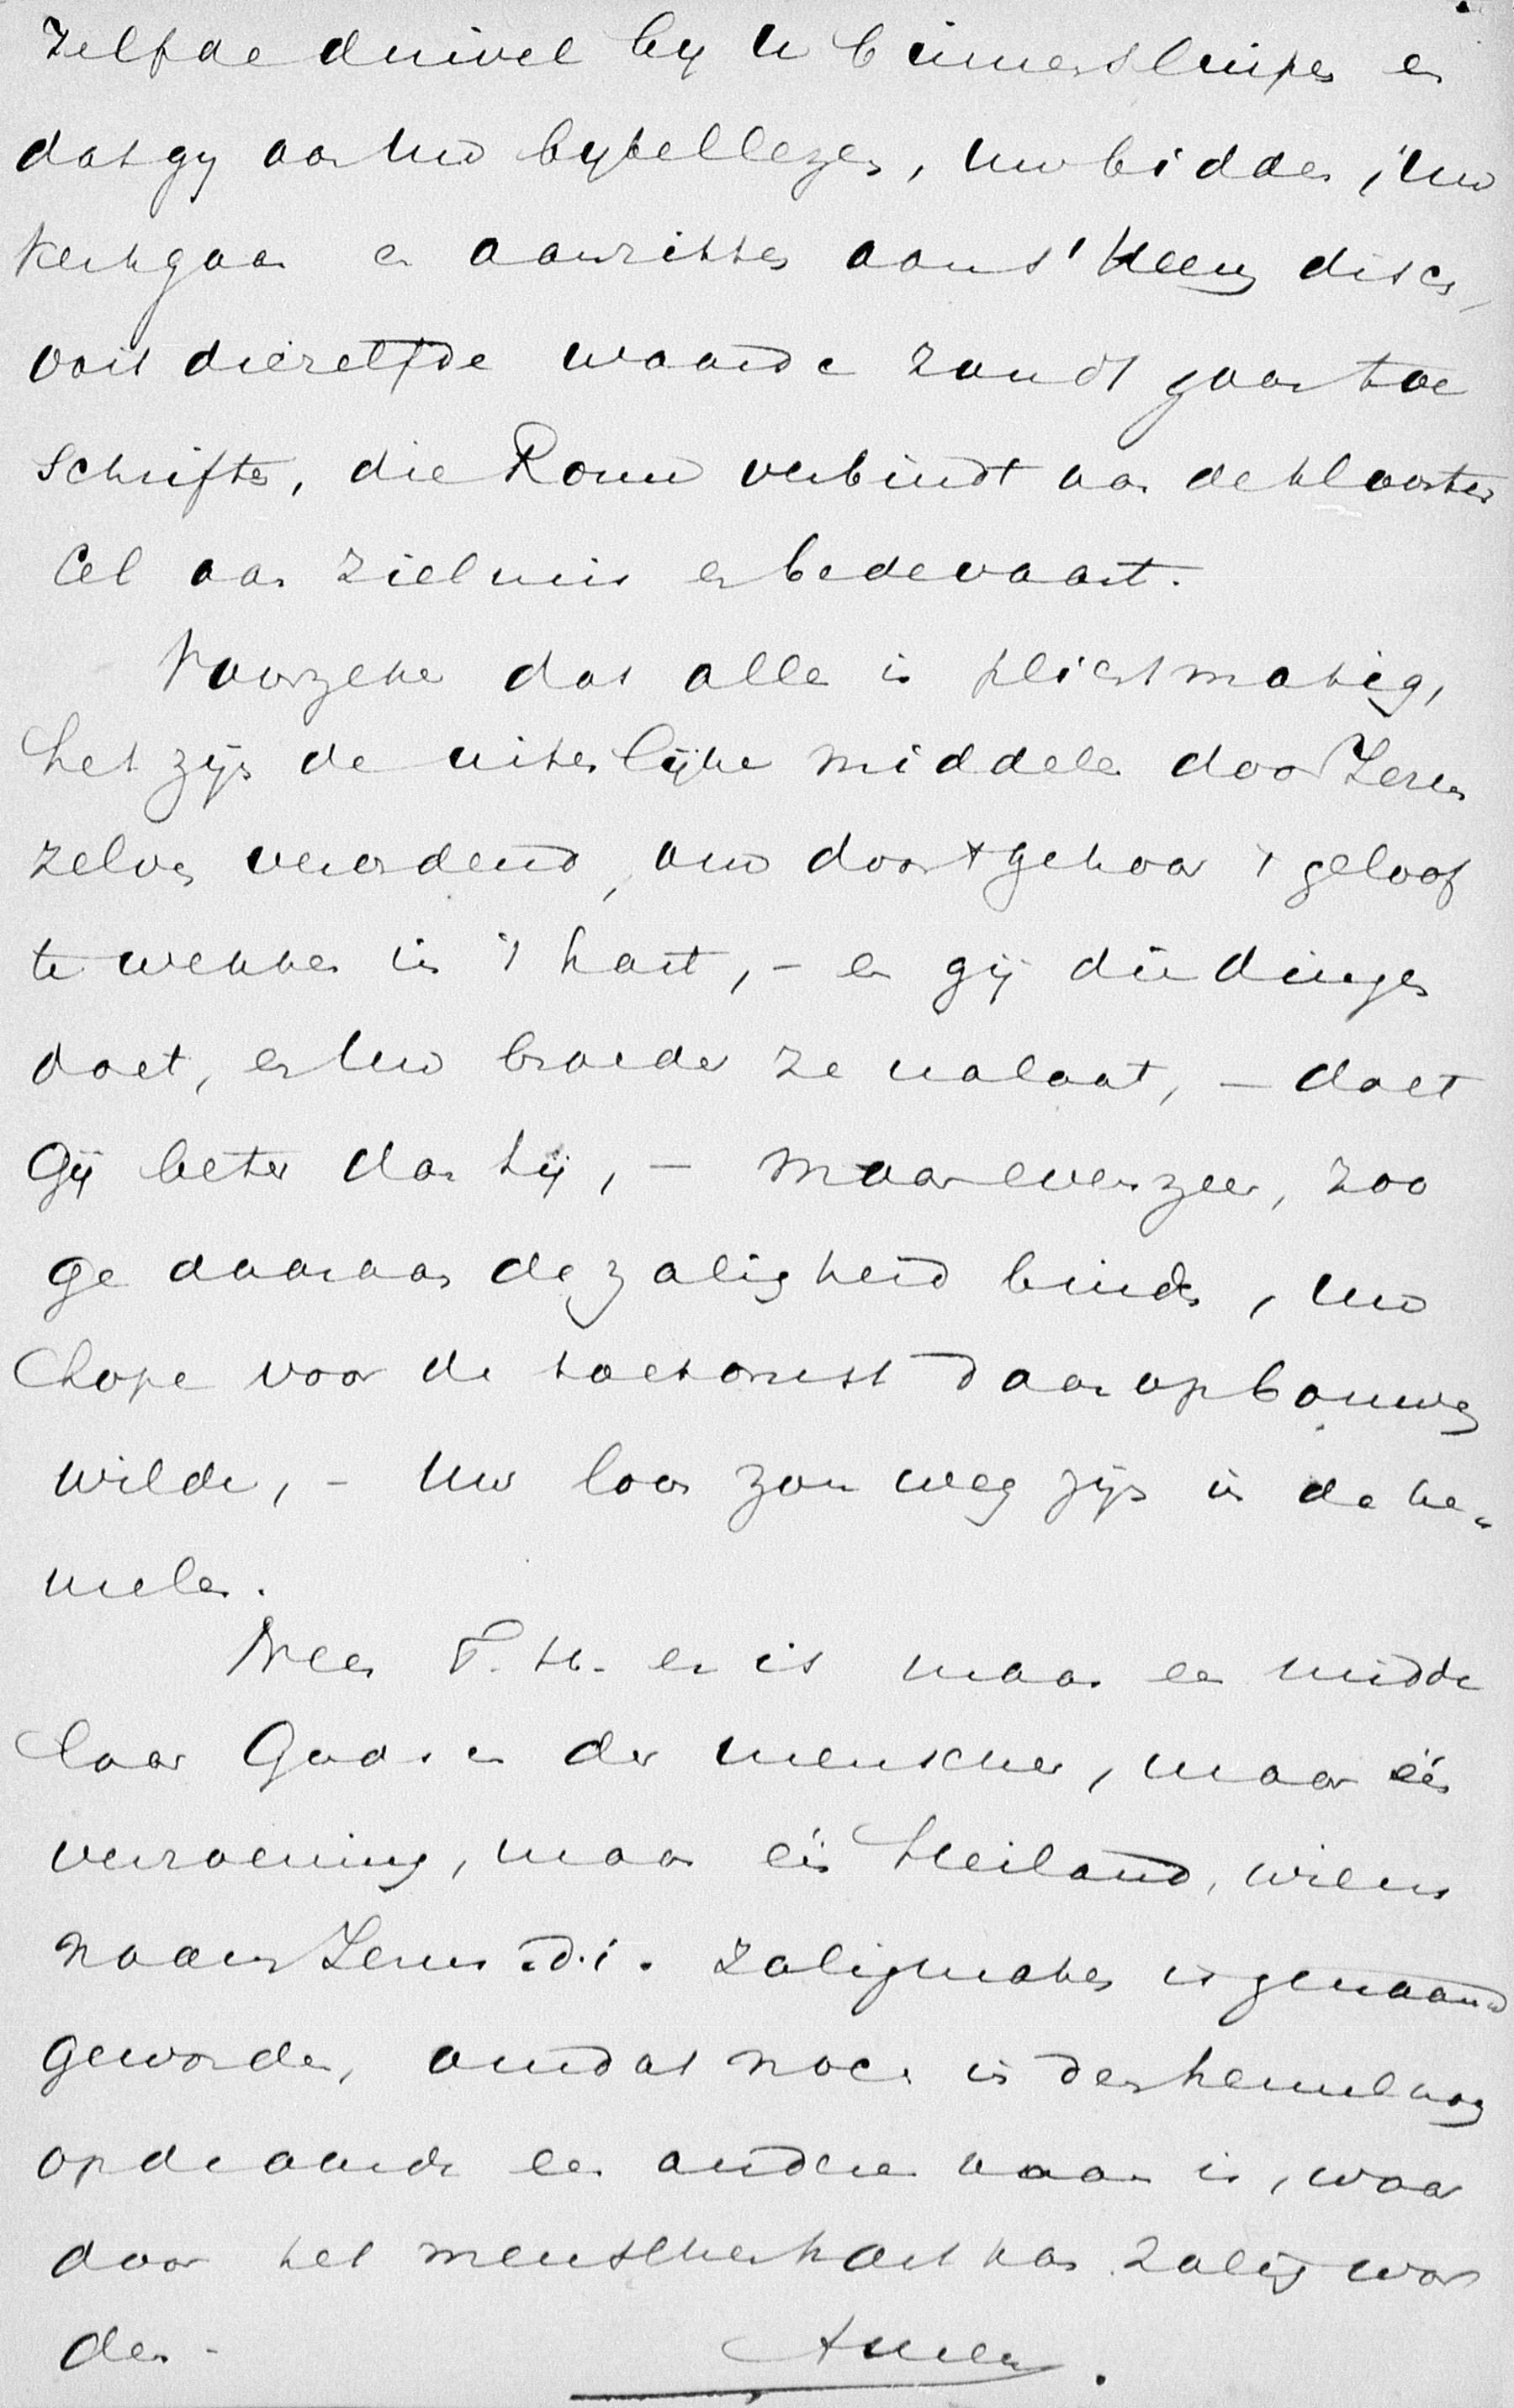 zelfde duivel by U binnensluipen en
dat gy aan Uw bybellezen, Uw bidden, Uw
kerkgaan en aanzitten aan 's Heeren disch,
ooit diezelfde waarde zoudt gaan toe
schrijften, die Rome verbindt aan de klooster
cel aan zielmis en bedevaart.
Voorzeker dat alles is plichtmatig,
het zijn de uiterlijke middelen door Jezus
zelven verordend, om door 't gehoor 't geloof
te wekken in 't hart, – en gij die dingen
doet, en Uw broeder ze nalaat, – doet
Gij beter dan hij, – maar evenzeer, zoo
ge daaraan de zaligheid binden, Uw
hope voor de toekomst daarop bouwen
wilde, – Uw loon zou weg zijn in de he„
melen.
Neen V. H. er is maar een midde
laar Gods en der menschen, maar één
verzoening, maar één Heiland, wiens
naam Jezus d.i. Zaligmaker is genaamd
geworden, omdat noch in den hemel noch
op de aarde een andere naam is, waar
door het menschenhart kan zalig wor
den.
Amen.